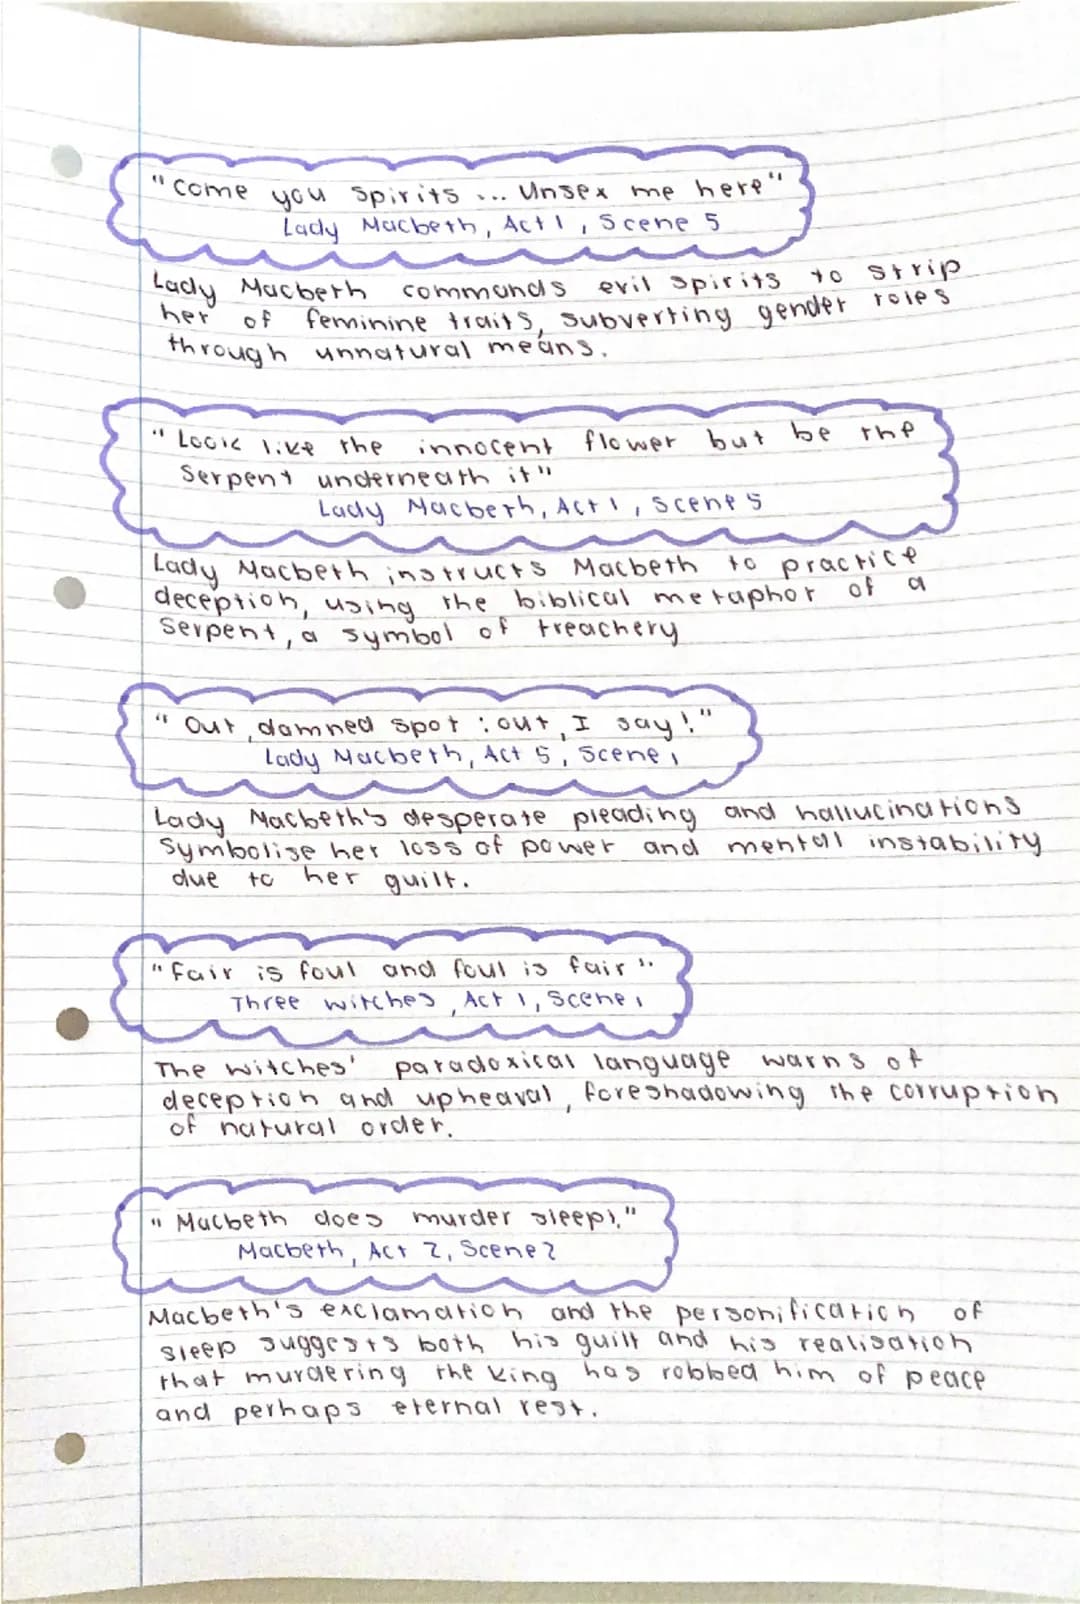 "Come you Spirits ... Unsex me here"
Lady Macbeth, Act 1, Scene 5
Lady Macbeth commands evil spirits to strip
her of feminine traits, subverting gender roles
through unnatural means.
"Look like the innocent flower but be the
Serpent underneath it"
Lady Macbeth, Act 1, Scene 5
Lady Macbeth instructs Macbeth to practice
deception, using the biblical metaphor of a
Serpent, a symbol of treachery
"Out, damned spot : out, I say!"
Lady Macbeth, Act 5, Scene 1
Lady Macbeth's desperate pleading and hallucinations
Symbolise her loss of power and mental instability
due to her guilt.
"Fair is foul and foul is fair".
Three witches, Act 1, Scene 1
The witches' paradoxical language warns of
deception and upheaval, foreshadowing the corruption
of natural order.
"Macbeth does murder sleep!."
Macbeth, Act 2, Scene 2
Macbeth's exclamation and the personification of
sleep suggests both his guilt and his realisation
that murdering the king has robbed him of peace
and perhaps eternal rest.